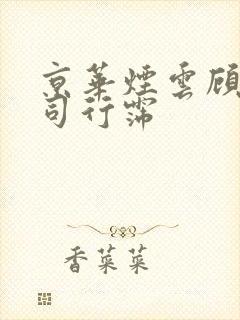 京華煙雲顧
司行霈
香菜菜